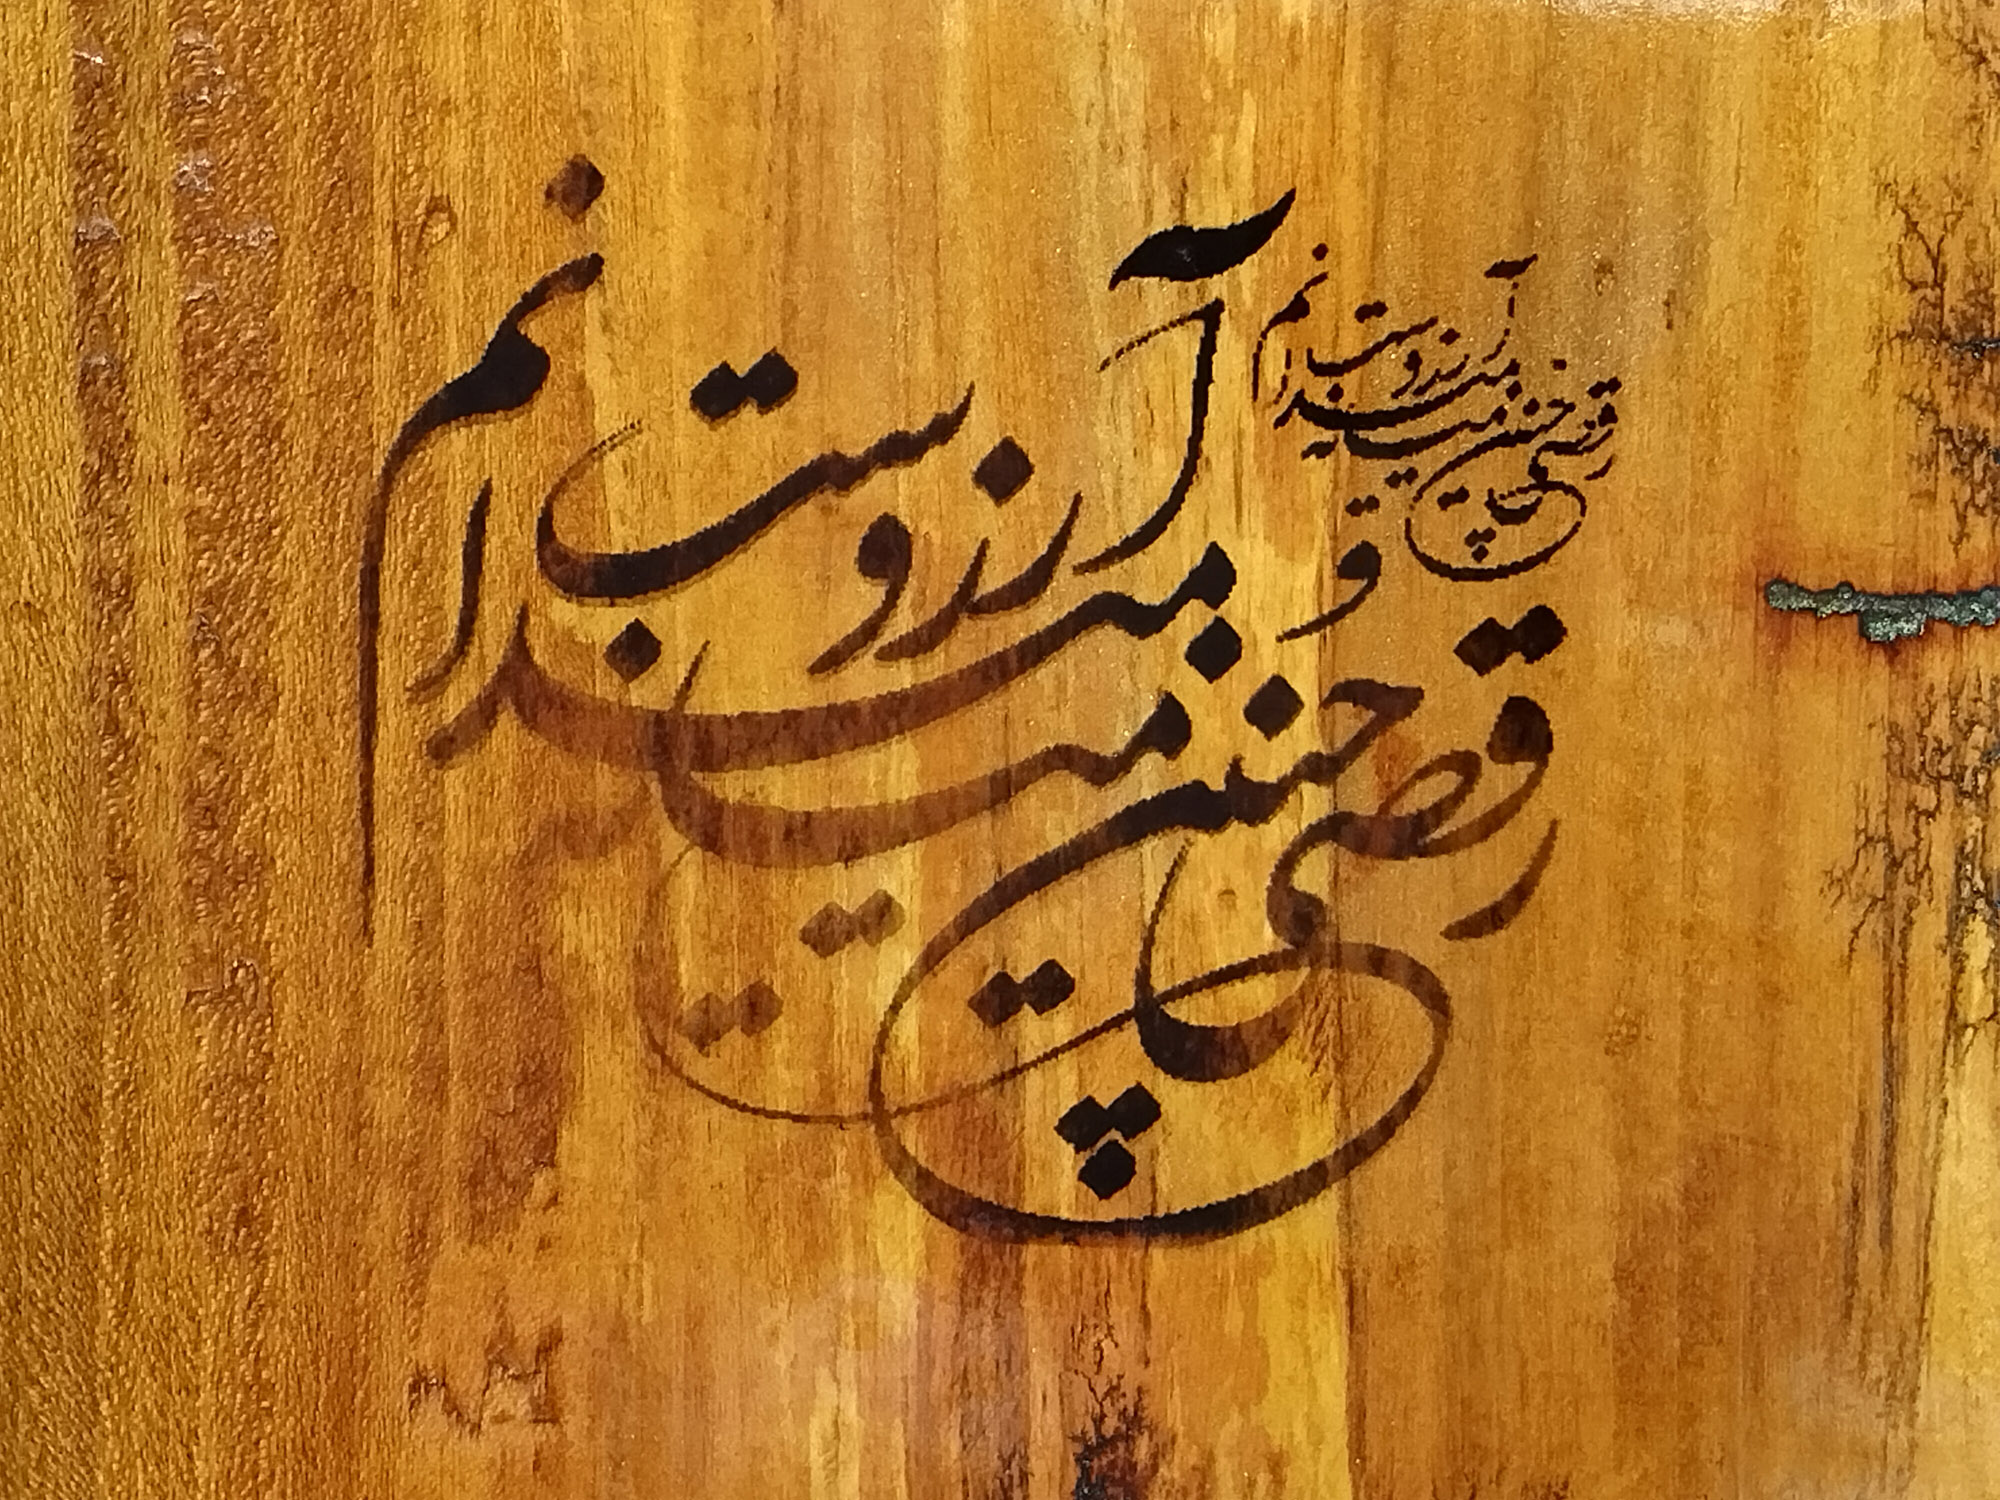 رقصی چنین میانه میدانم آرزوست
رقصی چنین میانه میدانم آرزوست